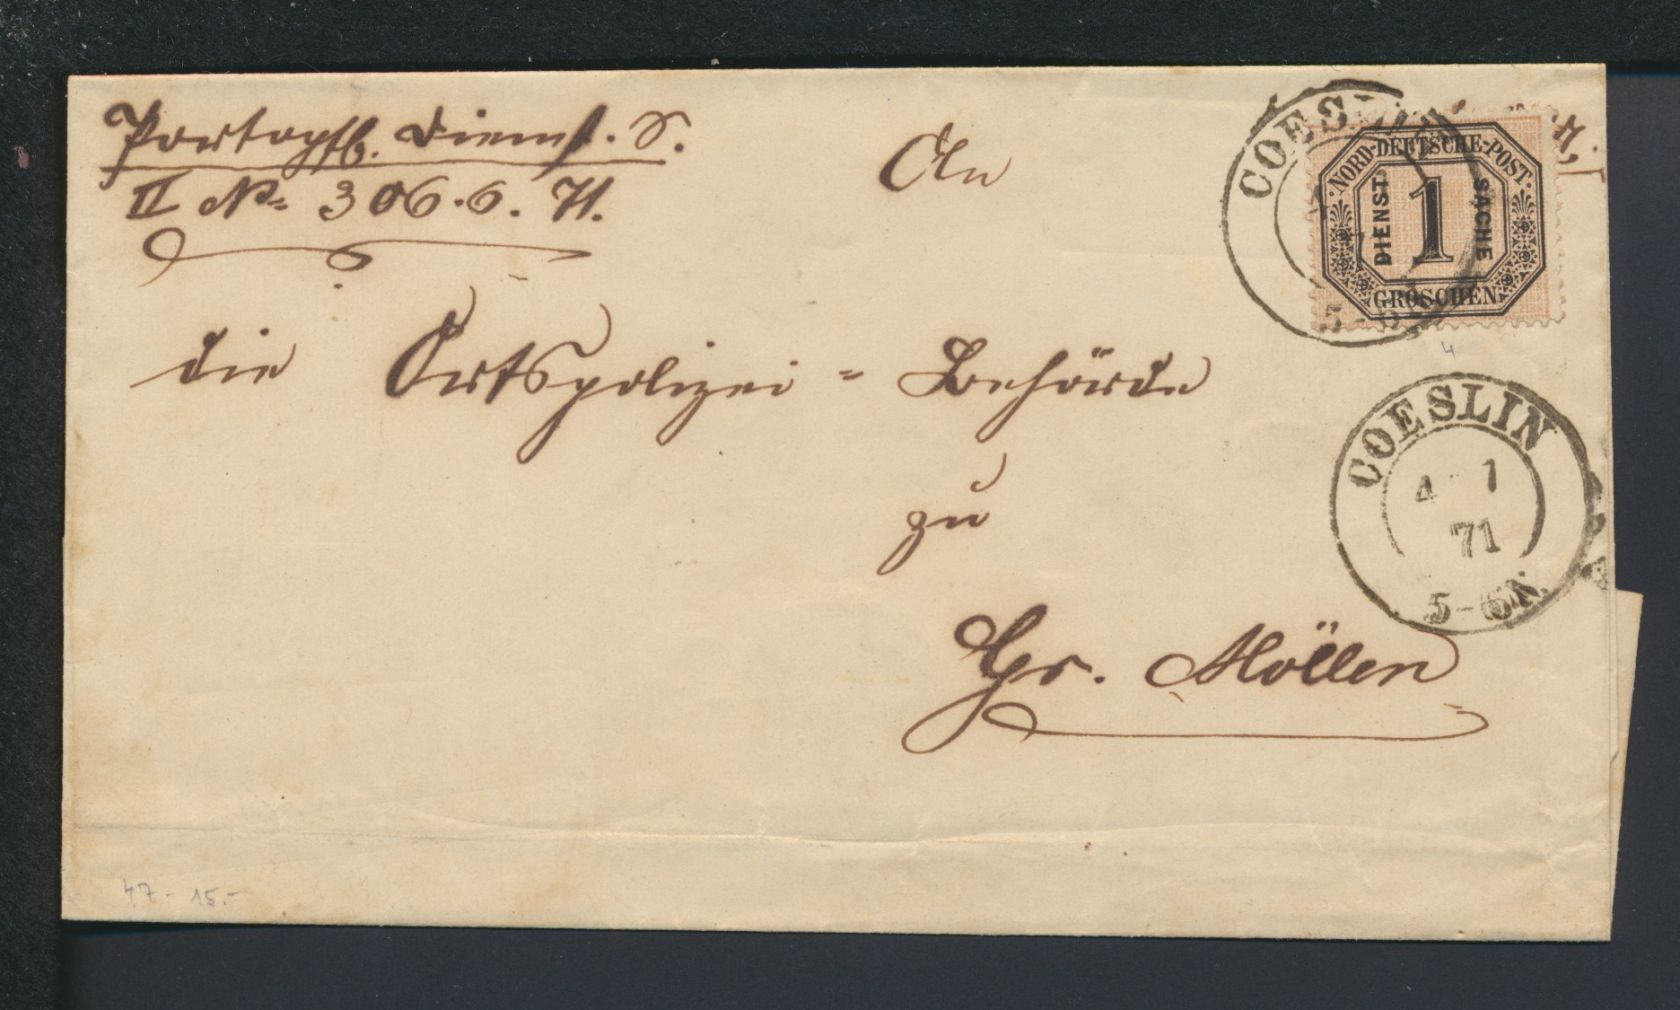 Portopfl. Dienst. S.
II No 306.6. 71.
An
die Ortspolizei = Behörde
zu
Gr. Möllen
NORD-DEUTSCHE-POST
DIENST 1 SACHE
GROSCHEN
4
COESLIN
4 1
71
5-6N.
47.- 15.-